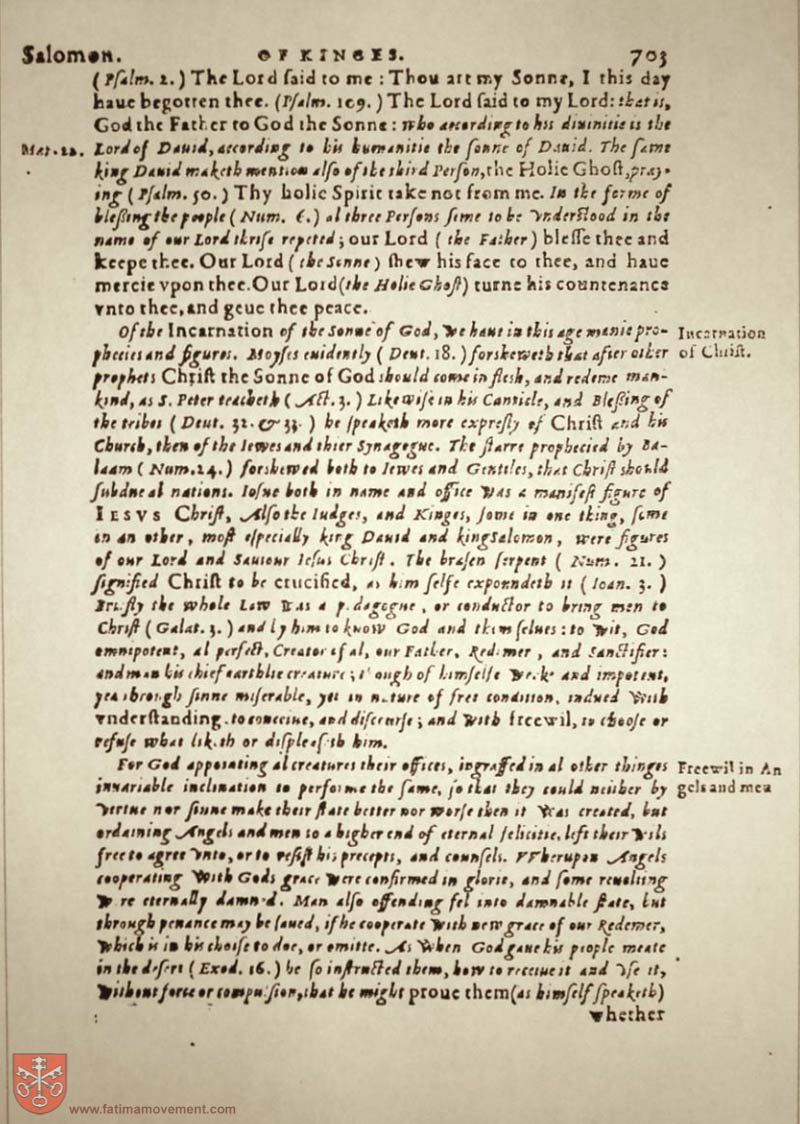 Salomon. OF KINGES. 703
(Psalm. 2.) The Lord said to me: Thou art my Sonne, I this day
haue begotten thee. (Psalm. 109.) The Lord said to my Lord: that is,
God the Father to God the Sonne: who according to his diuinitie is the
Mat. 22. Lord of Dauid, according to his humanitie the sonne of Dauid. The same
king Dauid maketh mention also of the third Person, the Holie Ghost, pray-
ing (Psalm. 50.) Thy holie Spirit take not from me. In the forme of
blessing the people (Num. 6.) al three Persons seme to be vnderstood in the
name of our Lord thrise repeted; our Lord (the Father) blesse thee and
keepe thee. Our Lord (the Sonne) shew his face to thee, and haue
mercie vpon thee. Our Lord (the Holie Ghost) turne his countenance
vnto thee, and geue thee peace.
Of the Incarnation of the Sonne of God, we haue in this age manie pro- Incarnation
phecies and figures. Moyses euidently (Deut. 18.) forsheweth that after other of Christ.
prophets Christ the Sonne of God should come in flesh, and redeme man-
kind, as S. Peter teacheth (Act. 3.) Likewise in his Canticle, and Blessing of
the tribes (Deut. 32. & 33.) he speaketh more expresly of Christ and his
Church, then of the Iewes and thier Synagogue. The starre prophecied by Ba-
laam (Num. 24.) forshewed both to Iewes and Gentiles, that Christ should
subdue al nations. Iosue both in name and office was a manifest figure of
IESVS Christ, Also the Iudges, and Kinges, some in one thing, some
in an other, most especially king Dauid and king Salomon, were figures
of our Lord and Sauiour Iesus Christ. The brasen serpent (Num. 21.)
signified Christ to be crucified, as him selfe expoundeth it (Ioan. 3.)
Briefly the whole Law was a pedagogue, or conductor to bring men to
Christ (Galat. 3.) and by him to know God and them selues: to wit, God
omnipotent, al perfect, Creator of al, our Father, Redemer, and Sanctifier:
and man his chief earthlie creature; though of himselfe weake and impotent,
yea through sinne miserable, yet in nature of free condition, indued with
vnderstanding, to conceiue, and discourse; and with freewil, to choose or
refuse what liketh or displeaseth him.
For God appointing al creatures their offices, ingraffed in al other thinges Freewil in An
inuariable inclination to performe the same, so that they could neither by gels and men
vertue nor sinne make their state better nor worse then it was created, but
ordaining Angels and men to a higher end of eternal felicitie, left their wils
free to agree vnto, or to resist his precepts, and counsels. VVherupon Angels
cooperating with Gods grace were confirmed in glorie, and some reuolting
were eternally damned. Man also offending fel into damnable state, but
through penance may be saued, if he cooperate with new grace of our Redemer,
which is in his choise to doe, or omitte. As when God gaue his people meate
in the desert (Exod. 16.) he so instructed them, how to receiue it and vse it,
without force or compulsion, that he might proue them (as himself speaketh)
whether
www.fatimamovement.com